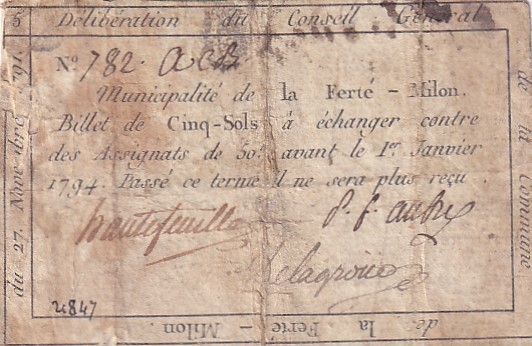 Délibération du Conseil Général
de la Commune
de la Ferté - Milon.
du 27. Novembre
N.º 782.
Municipalité de la Ferté - Milon.
Billet de Cinq-Sols à échanger contre
des Assignats de 50.ˡ avant le 1.er Janvier
1794. Passé ce terme il ne sera plus reçu
hautefeuille
P. f. aubry
Delagroue